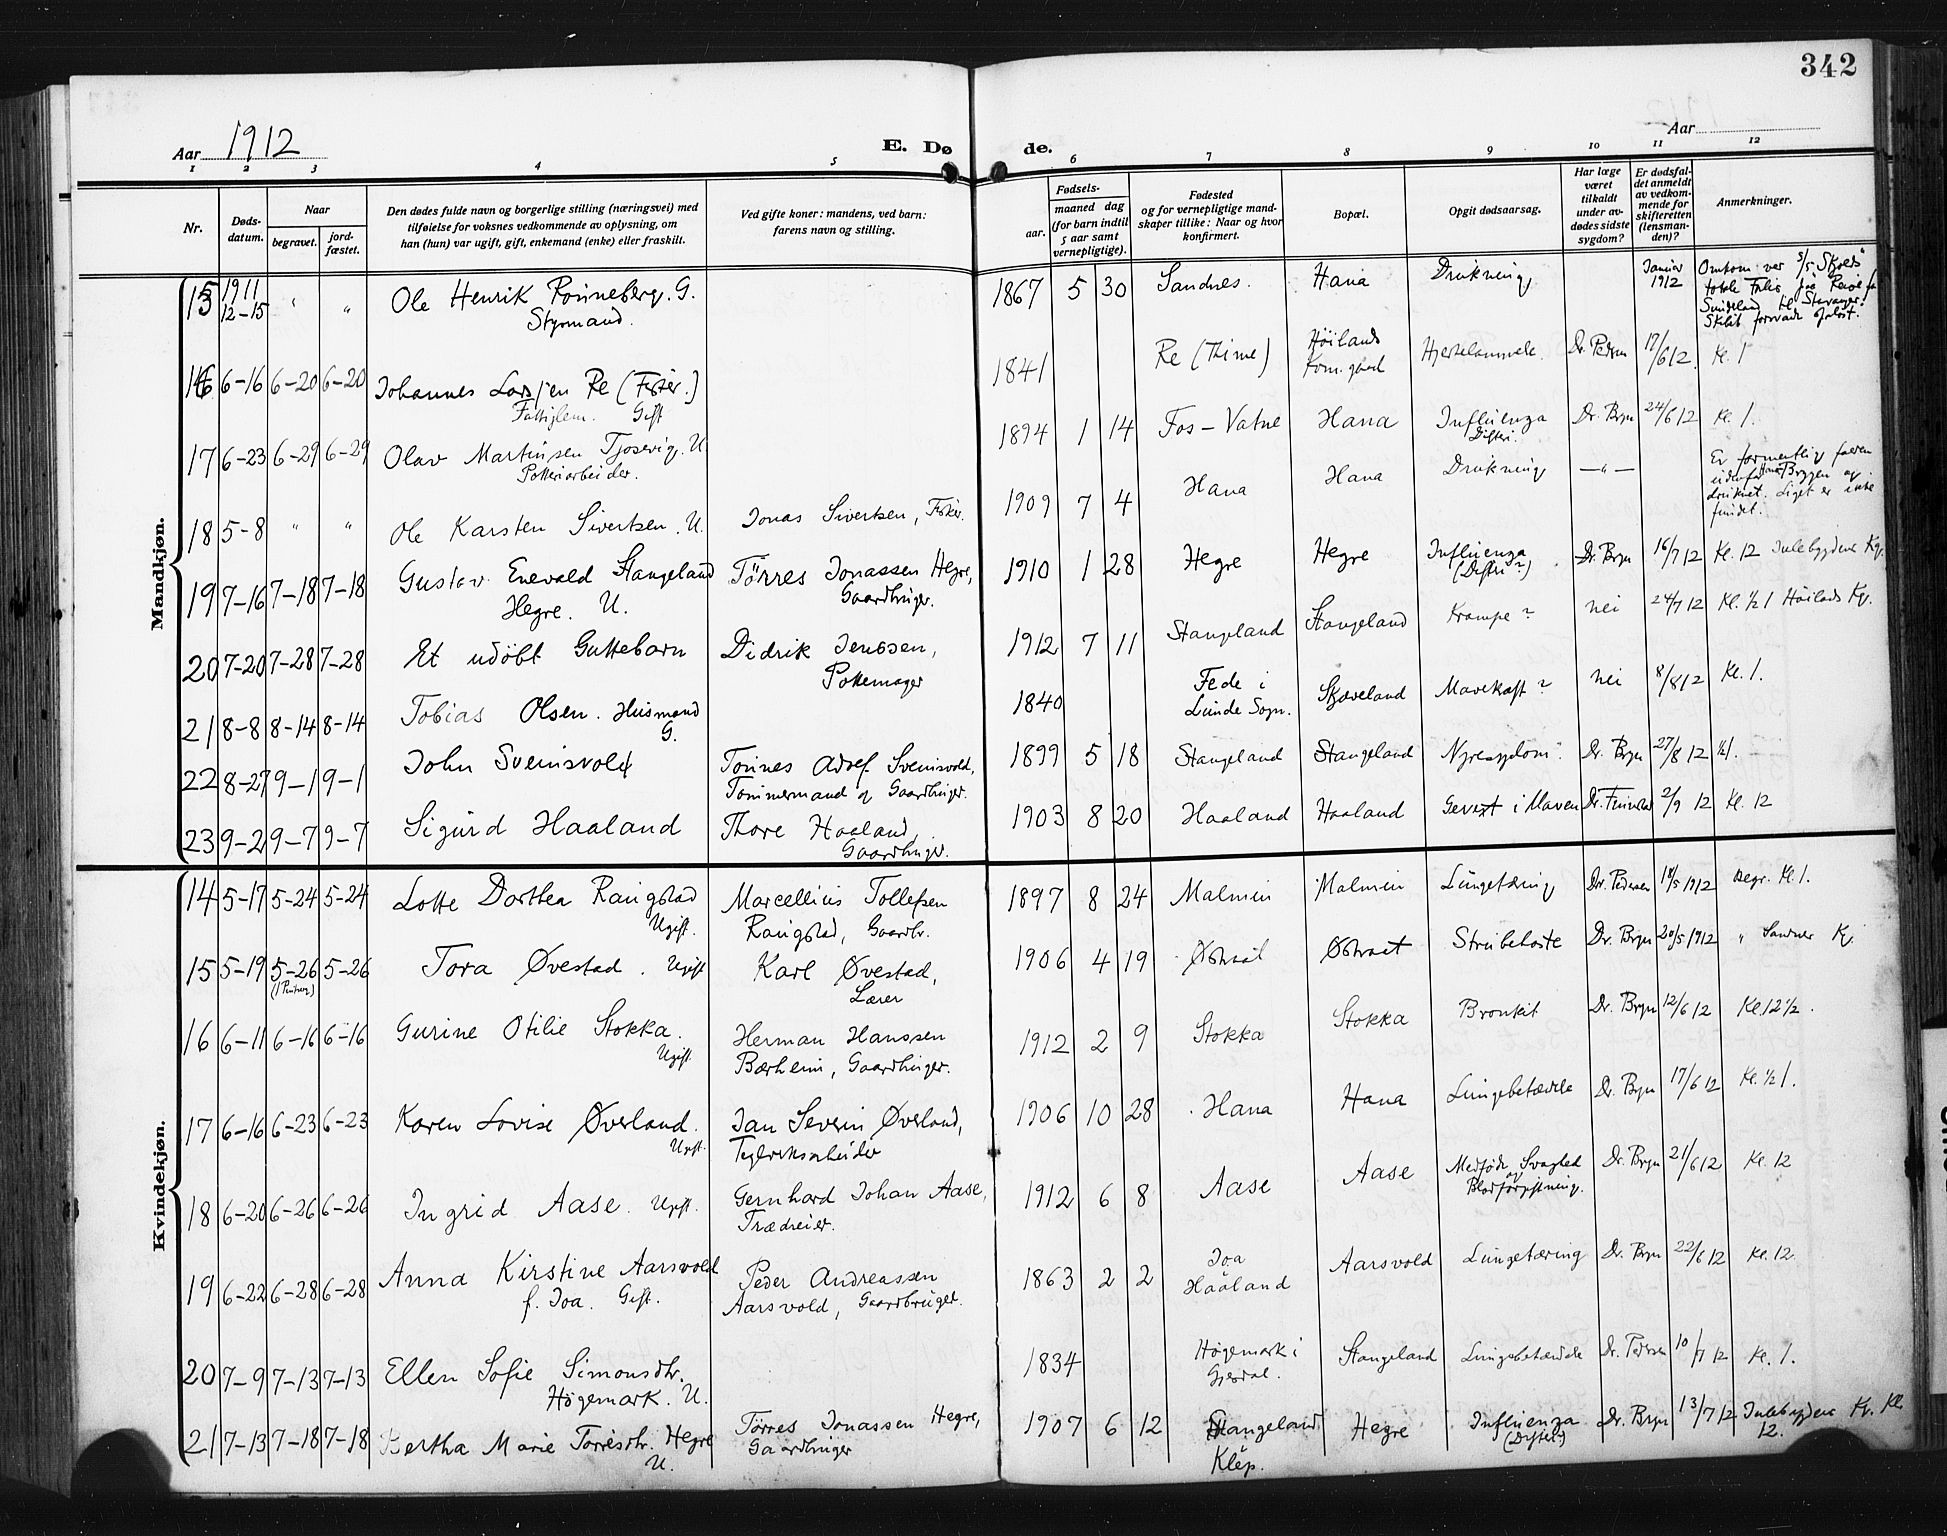 342
Aar 1912
E. Døde.
Aar
1 2 3 4 5 6 7 8 9 10 11 12
Nr.
Døds-datum.
Naar
begravet.
jord-fæstet.
Den dødes fulde navn og borgerlige stilling (næringsvei) med
tilføielse for voksnes vedkommende av oplysning, om
han (hun) var ugift, gift, enkemand (enke) eller fraskilt.
Ved gifte koner: mandens, ved barn:
farens navn og stilling.
Fødsels-
aar.
maaned dag
(for barn indtil
5 aar samt
vernepligtige).
Fødested
og for vernepligtige mand-
skaper tillike: Naar og hvor
konfirmert.
Bopæl.
Opgit dødsaarsag.
Har læge
været
tilkaldt
under av-
dødes sidste
sygdom?
Er dødsfal-
det anmeldt
av vedkom-
mende for
skifteretten
(lensman-
den)?
Anmerkninger.
Mandkjøn.
15 1911 12-15 " " Ole Henrik Rönneberg. G. Styrmand. 1867 5 30 Sandnes. Hana Drukning Januar 1912 Omkom ved
16 6-16 6-20 6-20 Johannes Larsen Re (Fisker.) Fattiglem. Gift 1841 Re (Thime) Høilands Kom. Hjertelammelse. Dr. Pedersen 17/6 12. Kl. 1
17 6-23 6-29 6-29 Olav Martinsen Tjosevig. U. Potteriarbeider. 1894 1 14 Fos-Vatne Hana Influenza Difteri. Dr. Bryn 24/6 12 Kl. 1.
18 5-8 " " Ole Karsten Sivertsen. U. Jonas Sivertsen, Fisker. 1909 7 4 Hana Hana Drukning —"— Er formentlig falden utenfor Hana Bryggen og druknet. Liget er ikke fundet.
19 7-16 7-18 7-18 Gustav Enevald Stangeland Hegre. U. Tørres Jonassen Hegre, Gaardbruger. 1910 1 28 Hegre Hegre Influenza (Difteri?) Dr. Bryn 16/7 12 Kl. 12 Julebygdens Kg.
20 7-20 7-28 7-28 Et udøbt Guttebarn Didrik Jenssen, Pottemager 1912 7 11 Stangeland Stangeland Krampe? nei 24/7 12 Kl. ½ 1 Høilands Kg.
21 8-8 8-14 8-14 Tobias Olsen. Husmand G. 1840 Fede i Lunde Sogn. Skjæveland Mavekræft? nei 8/8 12 Kl. 1.
22 8-27 9-1 9-1 John Sveinsvold Tønnes Adolf Sveinsvold, Tømmermand og Gaardbruger. 1899 5 18 Stangeland Stangeland Nyresygdom. Dr. Bryn 27/8 12
23 9-2 9-7 9-7 Sigurd Haaland Thore Haaland, Gaardbruger. 1903 8 20 Haaland Haaland Gevext i Maven 2/9 12 Kl. 12
Kvindekjøn.
14 5-17 5-24 5-24 Lotte Dorthea Raugstad Ugift. Marcellius Tollefsen Raugstad, Gaardbr. 1897 8 24 Malmin Malmin Lungetæring Dr. Pedersen 18/5 1912 Begr. Kl. 1.
15 5-19 5-26 5-26 Tora Øvestad. Ugift Karl Øvestad, Lærer 1906 4 19 Østraat Østraat Strubehoste Dr. Bryn 20/5 1912 " Sandnes Kg.
16 6-11 6-16 6-16 Gurine Otilie Stokka. Ugift. Herman Hanssen Bærheim, Gaardbruger. 1912 2 9 Stokka Stokka Bronkit Dr. Bryn 12/6 12 Kl. 12½.
17 6-16 6-23 6-23 Karen Lovise Øverland. Ugift. Jan Severin Øverland, Teglverksarbeider 1906 10 28 Hana Hana Lungebetændelse Dr. Bryn 17/6 12 Kl. ½ 1.
18 6-20 6-26 6-26 Ingrid Aase. Ugift. Gernhard Johan Aase, Trædreier. 1912 6 8 Aase Aase Medfødt Svaghed og Blodforgiftning. Dr. Bryn 21/6 12 Kl. 12
19 6-22 6-28 6-28 Anna Kirstine Aarsvold f. Joa. Gift. Peder Andreassen Aarsvold, Gaardbruger. 1863 2 2 Joa Haaland Aarsvold Lungetæring Dr. Bryn 22/6 12 Kl. 12.
20 7-9 7-13 7-13 Ellen Sofie Simonsdtr. Høgemark. U. 1834 Høgemark i Gjesdal. Stangeland Lungebetændelse Dr. Pedersen 10/7 12 Kl. 1.
21 7-13 7-18 7-18 Bertha Marie Torresdtr. Hegre U. Tørres Jonassen Hegre, Gaardbruger 1907 6 12 Stangeland, Klep. Hegre Influenza (Difteri?) Dr. Bryn 13/7 12 Julebygdens Kg. Kl 12.